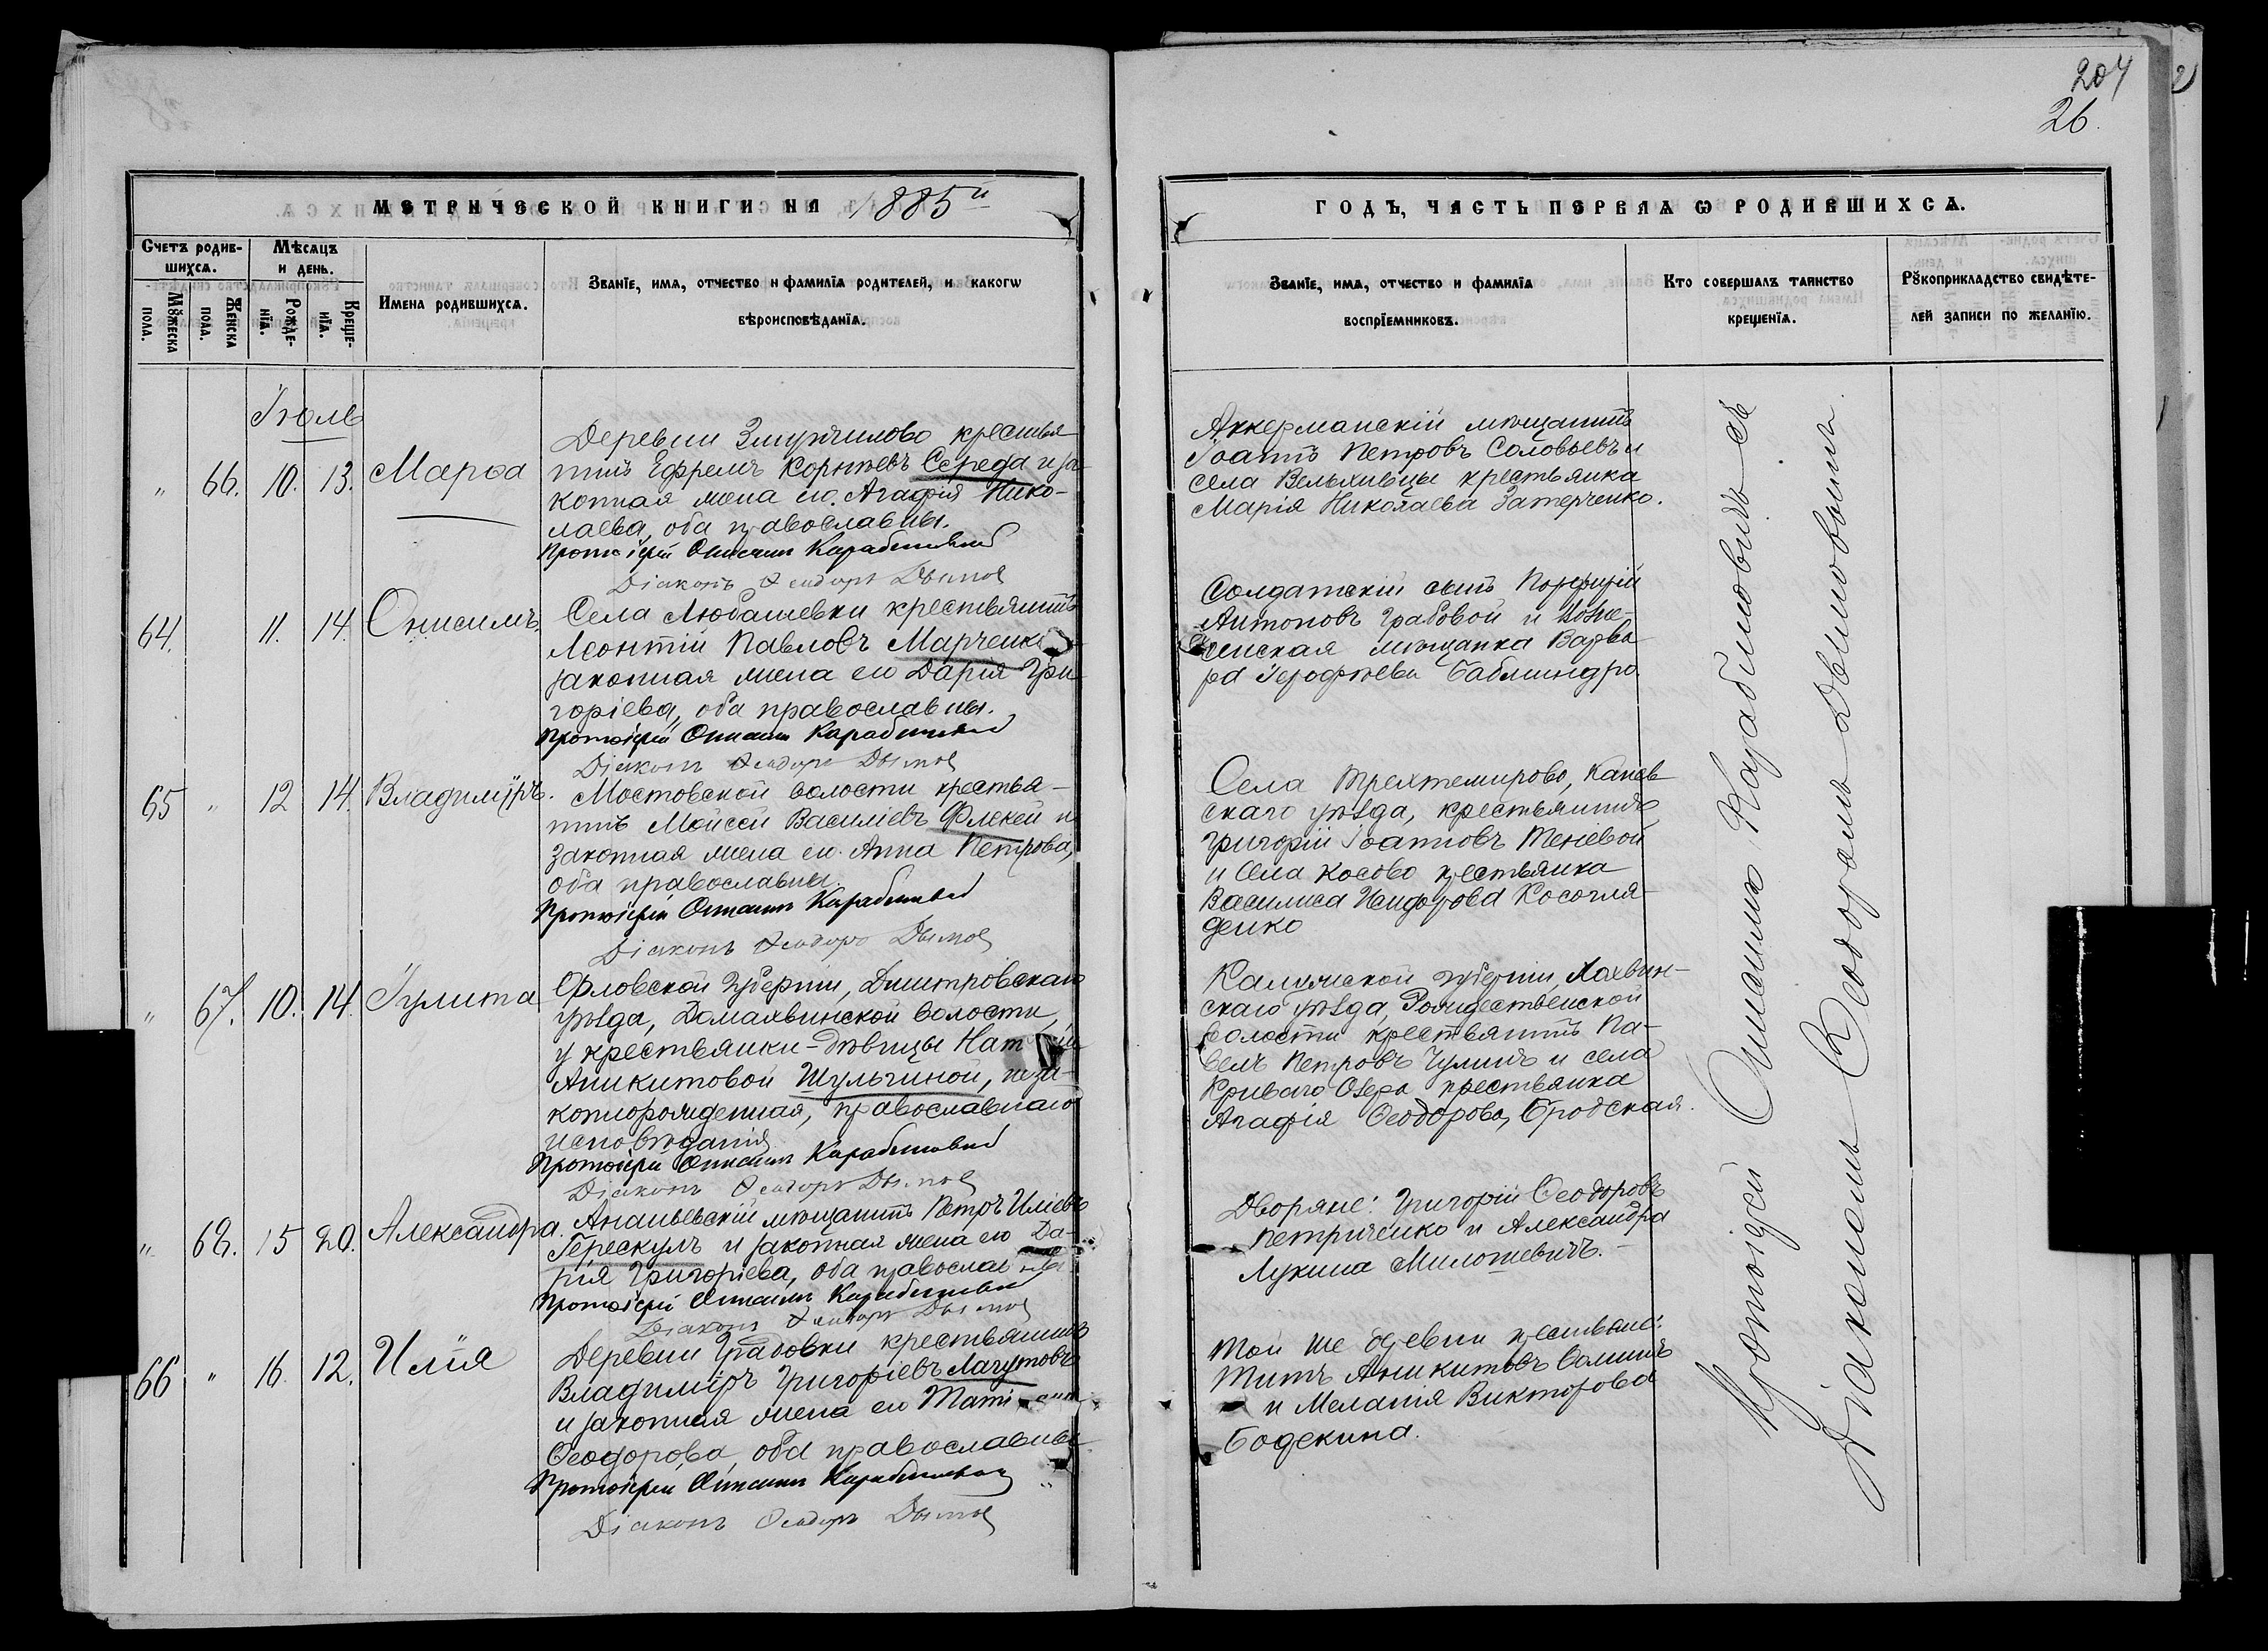 204
26.
МЕТРИЧЕСКОЙ КНИГИ НА 1885й
ГОДЪ, ЧАСТЬ ПЕРВАЯ Ѡ РОДИВШИХСѦ.
Счетъ родив-
шихсѧ.
Мѣсѧцъ
и день.
Мꙋжеска
пола.
Женска
пола.
Рожде-
нїѧ.
Креще-
нїѧ.
Имена родившихсѧ.
Званїе, имѧ, отчество и фамилїѧ родителей, и какогѡ
вѣроисповѣданїѧ.
Званїе, имѧ, отчество и фамилїѧ
воспрїемниковъ.
Кто совершалъ таинство
крещенїѧ.
Рꙋкоприкладство свидѣте-
лей записи по желанїю.
Іюль
" 66. 10. 13. Марѳа
Деревни крестья-
нинъ Ефремъ Корнѣевъ Середа и за
конная жена его Агафія Нико-
лаева, оба православны.
Протоіерей Онисимъ Карабиновичъ
Діаконъ Ѳеодоръ
Аккерманскій мѣщанинъ
Іоаннъ Петровъ Соловьевъ и
села крестьянка
Марія Николаева Затерченко.
64. 11. 14. Онисимъ.
Села Любашевки крестьянинъ
Леонтій Павловъ Марченко
законная жена его Дарія Гри
горіева, оба православны.
Протоіерей Онисимъ Карабиновичъ
Діаконъ Ѳеодоръ
Солдатскій сынъ Порфирій
Антоновъ Грабовой и Возне-
сенская мѣщанка Варва
ра Іерофѣева
65 " 12 14. Владимїръ.
Мостовской волости крестья-
нинъ Мойсей Василіевъ Флекей и
законная жена его Анна Петрова,
оба православны.
Протоіерей Онисимъ Карабиновичъ
Діаконъ Ѳеодоръ
Села Трехтемирово, Канев
скаго уѣзда, крестьянинъ
Григорій Іоанновъ
и села Косово крестьянка
Василиса Исидорова Косогля-
денко
" 67. 10. 14. Іулита
Орловской губерніи, Дмитровскаго
уѣзда, Домахвинской волости,
у крестьянки-дѣвицы
Аникитовой Шульгиной, неза-
коннорожденная, православнаго
исповѣданія
Протоіерей Онисимъ Карабиновичъ
Діаконъ Ѳеодоръ
Калужской губерніи, Лихвин-
скаго уѣзда, Рождественской
волости крестьянинъ Па-
велъ Петровъ и села
Криваго Озера крестьянка
Агафія Ѳеодорова Бродская.
" 68. 15 20. Александра.
Ананьевскій мѣщанинъ Петръ Иліевъ
Герескулъ и законная жена его Да-
рія Григоріева, оба православны
Протоіерей Онисимъ Карабиновичъ
Діаконъ Ѳеодоръ
Дворяне: Григорій Ѳеодоровъ
Петриченко и Александра
Лукина Милошевичъ.
66 " 16. 12. Илїя
Деревни Градовки крестьянинъ
Владимїръ Григоріевъ Лагутовъ
и законная жена его
Ѳеодорова, оба православны
Протоіерей Онисимъ Карабиновичъ
Діаконъ Ѳеодоръ
Той же деревни крестьяне:
Титъ Аникитовъ
и Меланія Викторова
Бодекина.
Протоіерей Онисимъ Карабиновичъ съ
Діакономъ Ѳеодоромъ